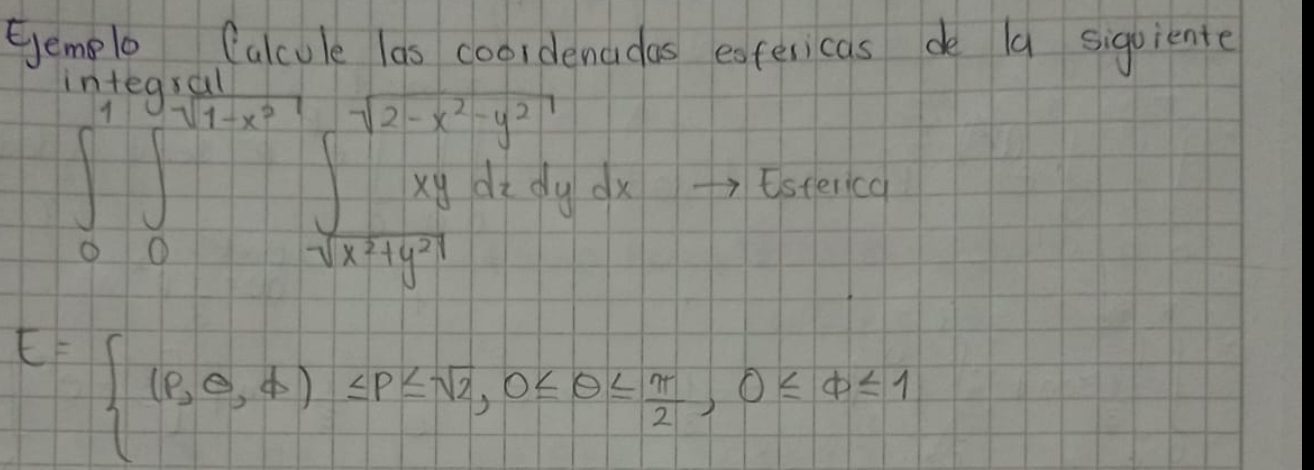 Ejemplo Calcule las coordenadas esfericas de la siguiente
integral
1 √1-x² √2-x²-y²
∫ ∫ ∫ xy dz dy dx → Esferica
0 0 √x²+y²
E = { (P, θ, ϕ) ≤P≤√2, 0≤ θ ≤ π/2, 0 ≤ ϕ ≤ 1